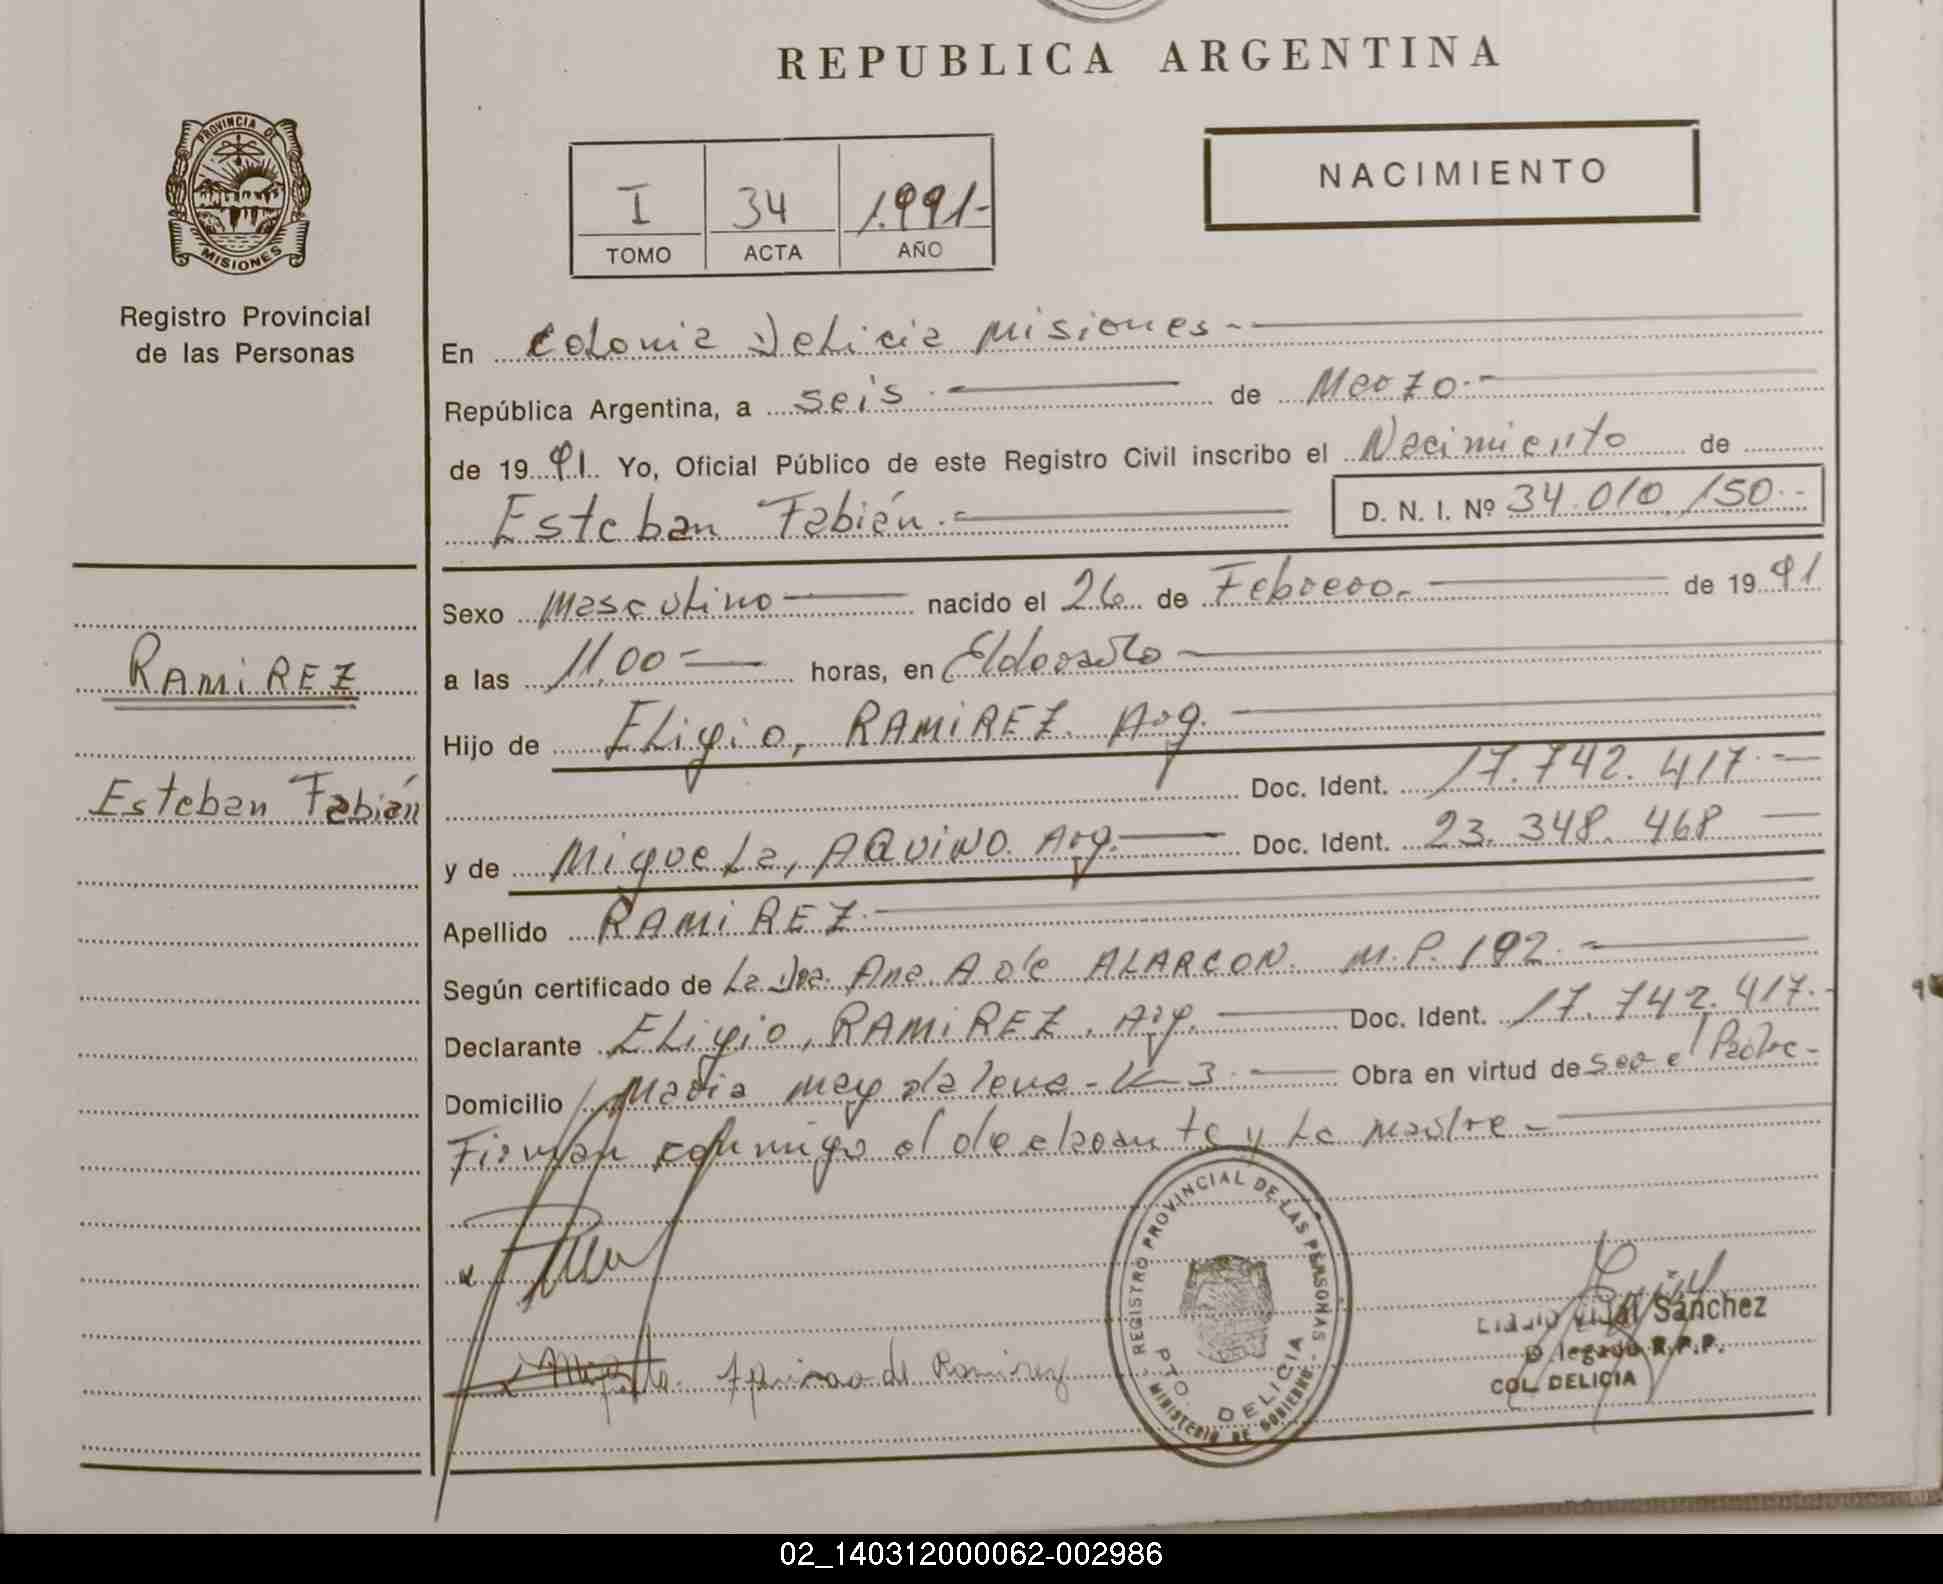 REPUBLICA ARGENTINA
PROVINCIA DE
MISIONES
Registro Provincial
de las Personas
NACIMIENTO
I 34 1.991-
TOMO ACTA AÑO
En Colonia Delicia Misiones-
República Argentina, a seis.- de Marzo.-
de 1991. Yo, Oficial Público de este Registro Civil inscribo el Nacimiento de
Esteban Fabián.- D. N. I. Nº 34.010.150.-
Sexo Masculino nacido el 26 de Febrero.- de 1991
a las 11,00- horas, en Eldorado
RAMIREZ
Hijo de Eligio, RAMIREZ. Arg.
Doc. Ident. 17.742.417.-
Esteban Fabián
y de Miguela, AQUINO. Arg. Doc. Ident. 23.348.468
Apellido RAMIREZ.
Según certificado de La Dra. Ana A de ALARCON. M.P. 192.-
Declarante ELigio, RAMIREZ. Arg. Doc. Ident. 17.742.417.-
Domicilio Maria Magdalena- K- 3.- Obra en virtud de ser el Padre-
Firman conmigo el declarante y La madre-
REGISTRO PROVINCIAL DE LAS PERSONAS
PTO. DELICIA
MINISTERIO DE GOBIERNO
de Ramirez
Vidal Sánchez
Delegado R.P.P.
COL. DELICIA
02_140312000062-002986